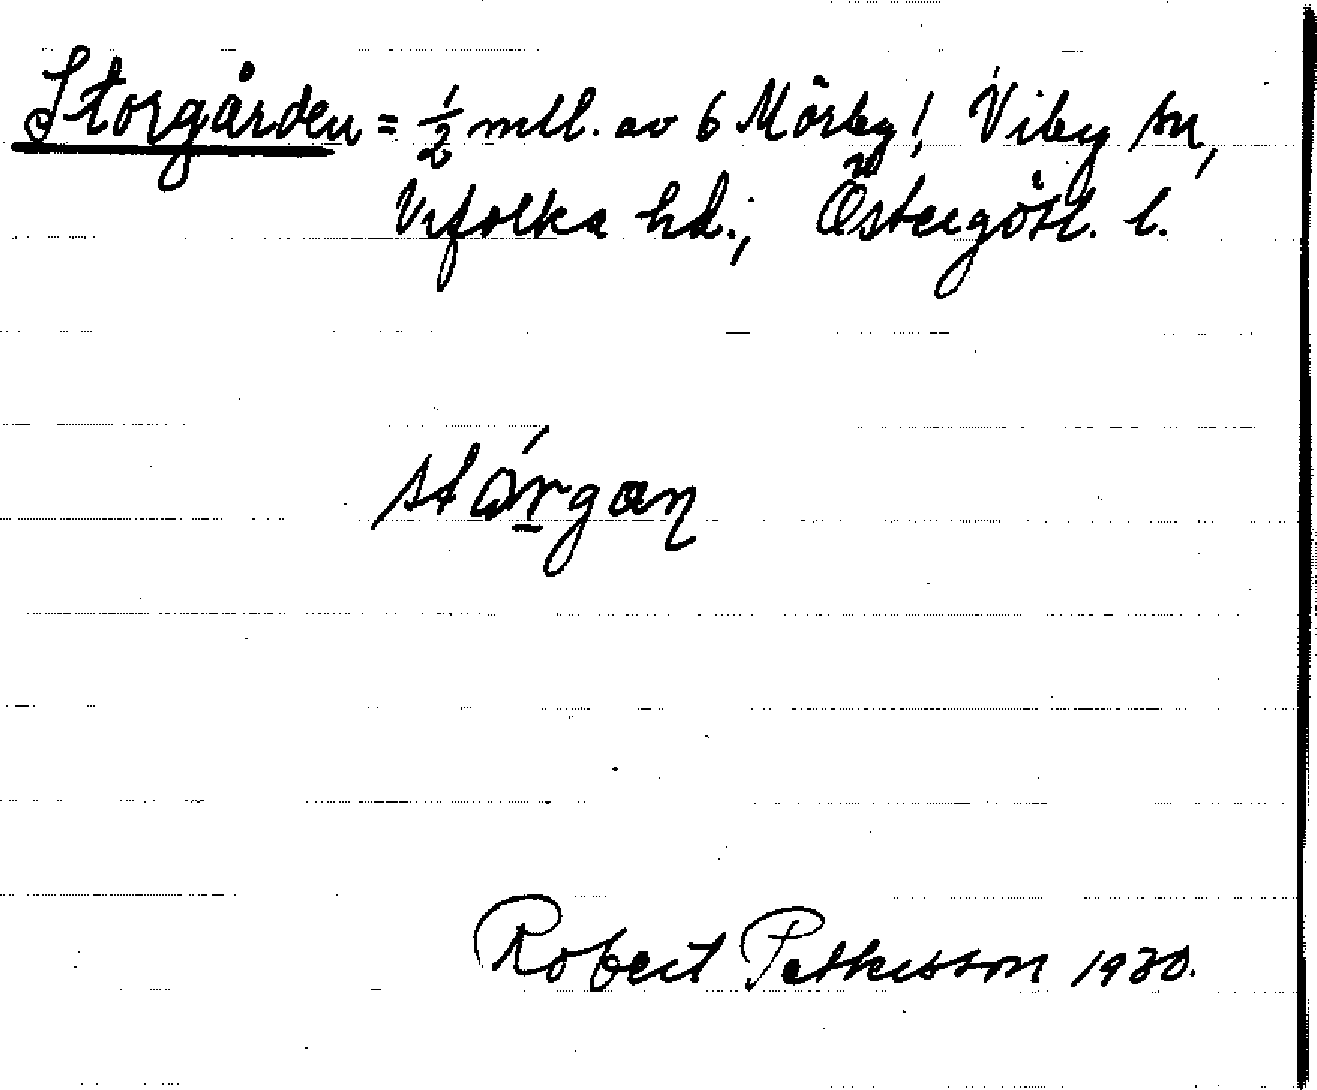 Storgården = ½ mtl. av 6 Mörby! Viby sn,
Vifolka hd.; Östergötl. l.
stórgan
Robert Pettersson 1930.